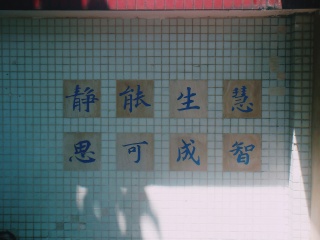 静能生慧
思可成智